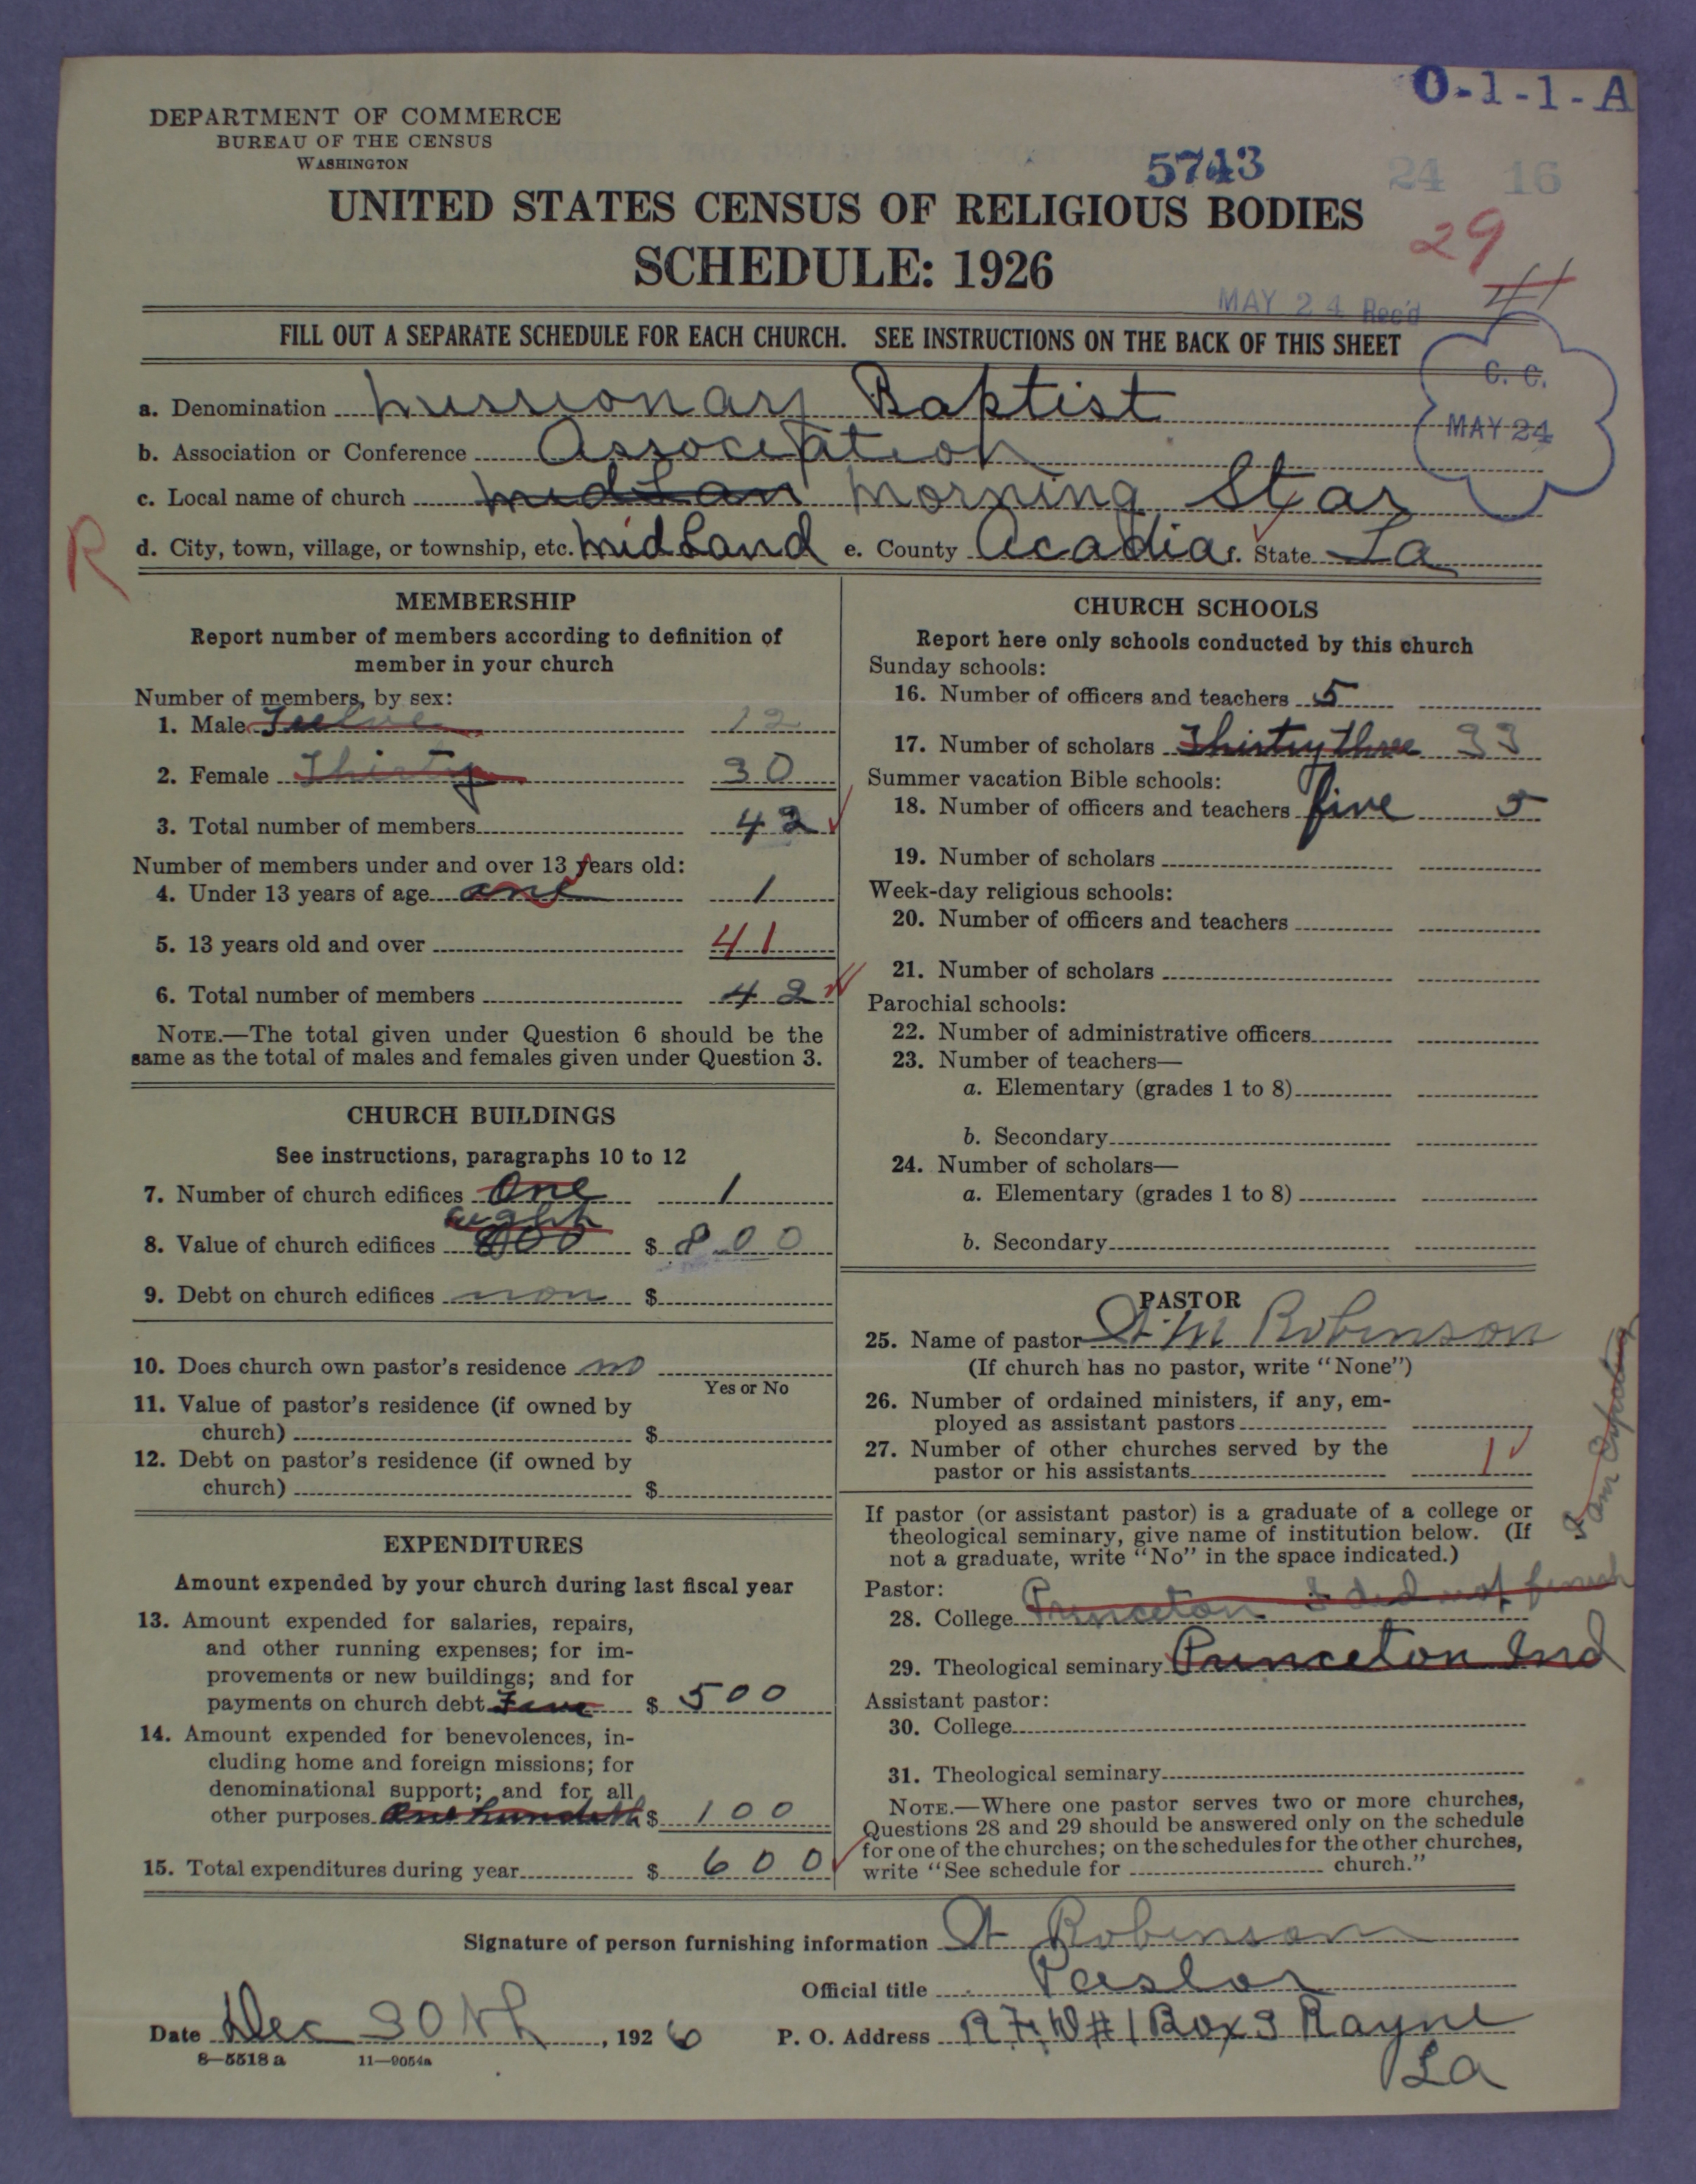 O-1-1-A
DEPARTMENT OF COMMERCE
BUREAU OF THE CENSUS
WASHINGTON
5743 24 16
UNITED STATES CENSUS OF RELIGIOUS BODIES
29
SCHEDULE: 1926
41
MAY 24 Rec'd
FILL OUT A SEPARATE SCHEDULE FOR EACH CHURCH. SEE INSTRUCTIONS ON THE BACK OF THIS SHEET
C. C.
MAY 24
a. Denomination Missionary Baptist
b. Association or Conference Association
c. Local name of church Midlan Morning Star
R
d. City, town, village, or township, etc. Midland e. County Acadia f. State La
MEMBERSHIP
Report number of members according to definition of
member in your church
Number of members, by sex:
1. Male Twelve 12
2. Female Thirty 30
3. Total number of members 42
Number of members under and over 13 years old:
4. Under 13 years of age one 1
5. 13 years old and over 41
6. Total number of members 42
NOTE.—The total given under Question 6 should be the
same as the total of males and females given under Question 3.
CHURCH BUILDINGS
See instructions, paragraphs 10 to 12
7. Number of church edifices One 1
eight
8. Value of church edifices 800 $ 800
9. Debt on church edifices non $
10. Does church own pastor's residence no
Yes or No
11. Value of pastor's residence (if owned by
church) $
12. Debt on pastor's residence (if owned by
church) $
EXPENDITURES
Amount expended by your church during last fiscal year
13. Amount expended for salaries, repairs,
and other running expenses; for im-
provements or new buildings; and for
payments on church debt Five $ 500
14. Amount expended for benevolences, in-
cluding home and foreign missions; for
denominational support; and for all
other purposes $ 100
15. Total expenditures during year $ 600
CHURCH SCHOOLS
Report here only schools conducted by this church
Sunday schools:
16. Number of officers and teachers 5
17. Number of scholars Thirty three 33
Summer vacation Bible schools:
18. Number of officers and teachers five 5
19. Number of scholars
Week-day religious schools:
20. Number of officers and teachers
21. Number of scholars
Parochial schools:
22. Number of administrative officers
23. Number of teachers—
a. Elementary (grades 1 to 8)
b. Secondary
24. Number of scholars—
a. Elementary (grades 1 to 8)
b. Secondary
PASTOR
25. Name of pastor A. M Robinson
(If church has no pastor, write "None")
26. Number of ordained ministers, if any, em-
ployed as assistant pastors
27. Number of other churches served by the
pastor or his assistants 1
If pastor (or assistant pastor) is a graduate of a college or
theological seminary, give name of institution below. (If
not a graduate, write "No" in the space indicated.)
Pastor:
28. College Princeton I did not finish
29. Theological seminary Princeton Ind
Assistant pastor:
30. College
31. Theological seminary
NOTE.—Where one pastor serves two or more churches,
Questions 28 and 29 should be answered only on the schedule
for one of the churches; on the schedules for the other churches,
write "See schedule for church."
Signature of person furnishing information A Robinson
Official title Pastor
Date Dec 30th, 1926 P. O. Address R.F.D #1 Box 3 Rayne
La
8—5518 a 11—9054a